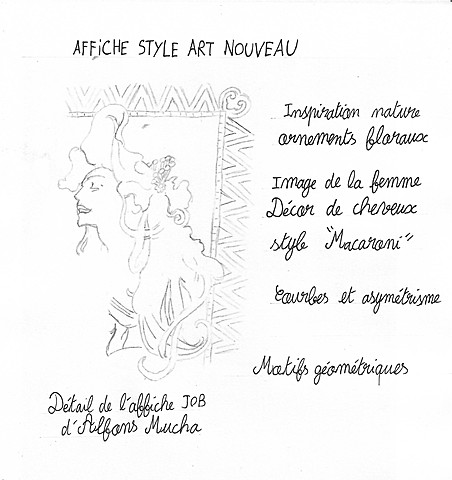 AFFICHE STYLE ART NOUVEAU
Inspiration nature
ornements floraux
Image de la femme
Décor de cheveux
style "Macaroni"
Courbes et asymétrisme
Motifs géométriques
Détail de l'affiche JOB
d'Alfons Mucha